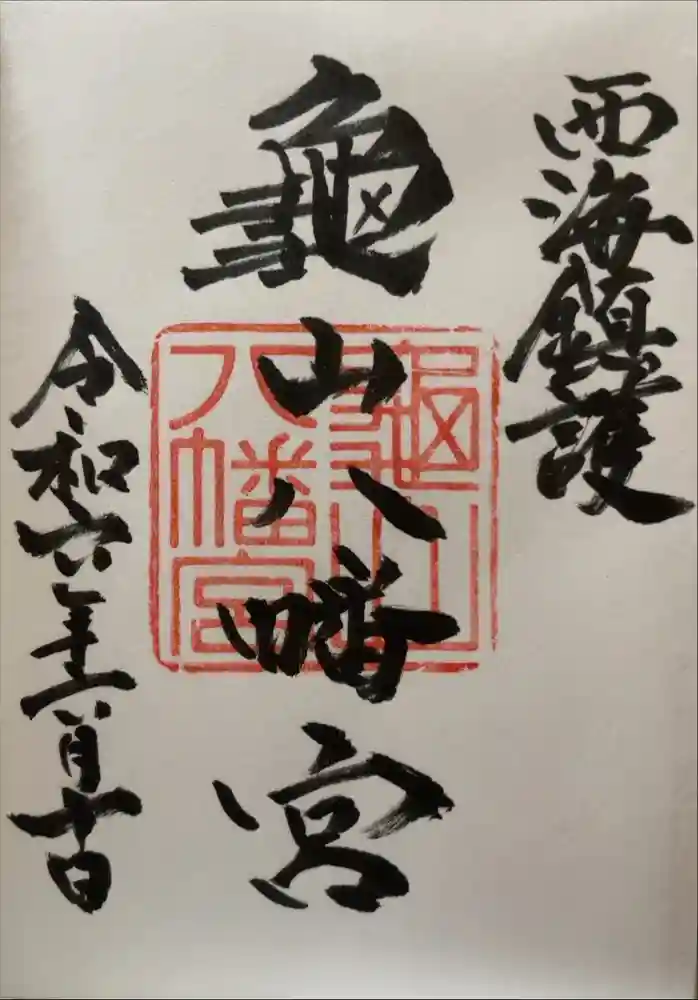 西海鎮護
龜山八幡宮
令和六年
月十日
龜山
八幡宮